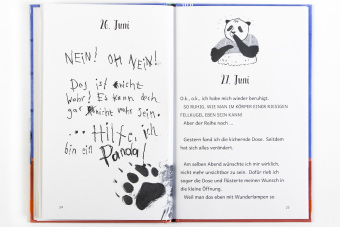 20. Juni
NEIN! OH NEIN!
Das ist nicht
wahr! Es kann doch
gar nicht wahr sein.
... Hilfe, ich
bin ein Panda!
24
22. Juni
O.k., o.k., ich habe mich wieder beruhigt.
SO RUHIG, WIE MAN IM KÖRPER EINER RIESIGEN
FELLKUGEL EBEN SEIN KANN!
Aber der Reihe nach ...
Gestern fand ich die kichernde Dose. Seitdem
hat sich alles verändert.
Am selben Abend wünschte ich mir wirklich,
nicht mehr unsichtbar zu sein. Dafür nahm ich
sogar die Dose und flüsterte meinen Wunsch in
die kleine Öffnung.
Weil man das eben mit Wunderlampen so